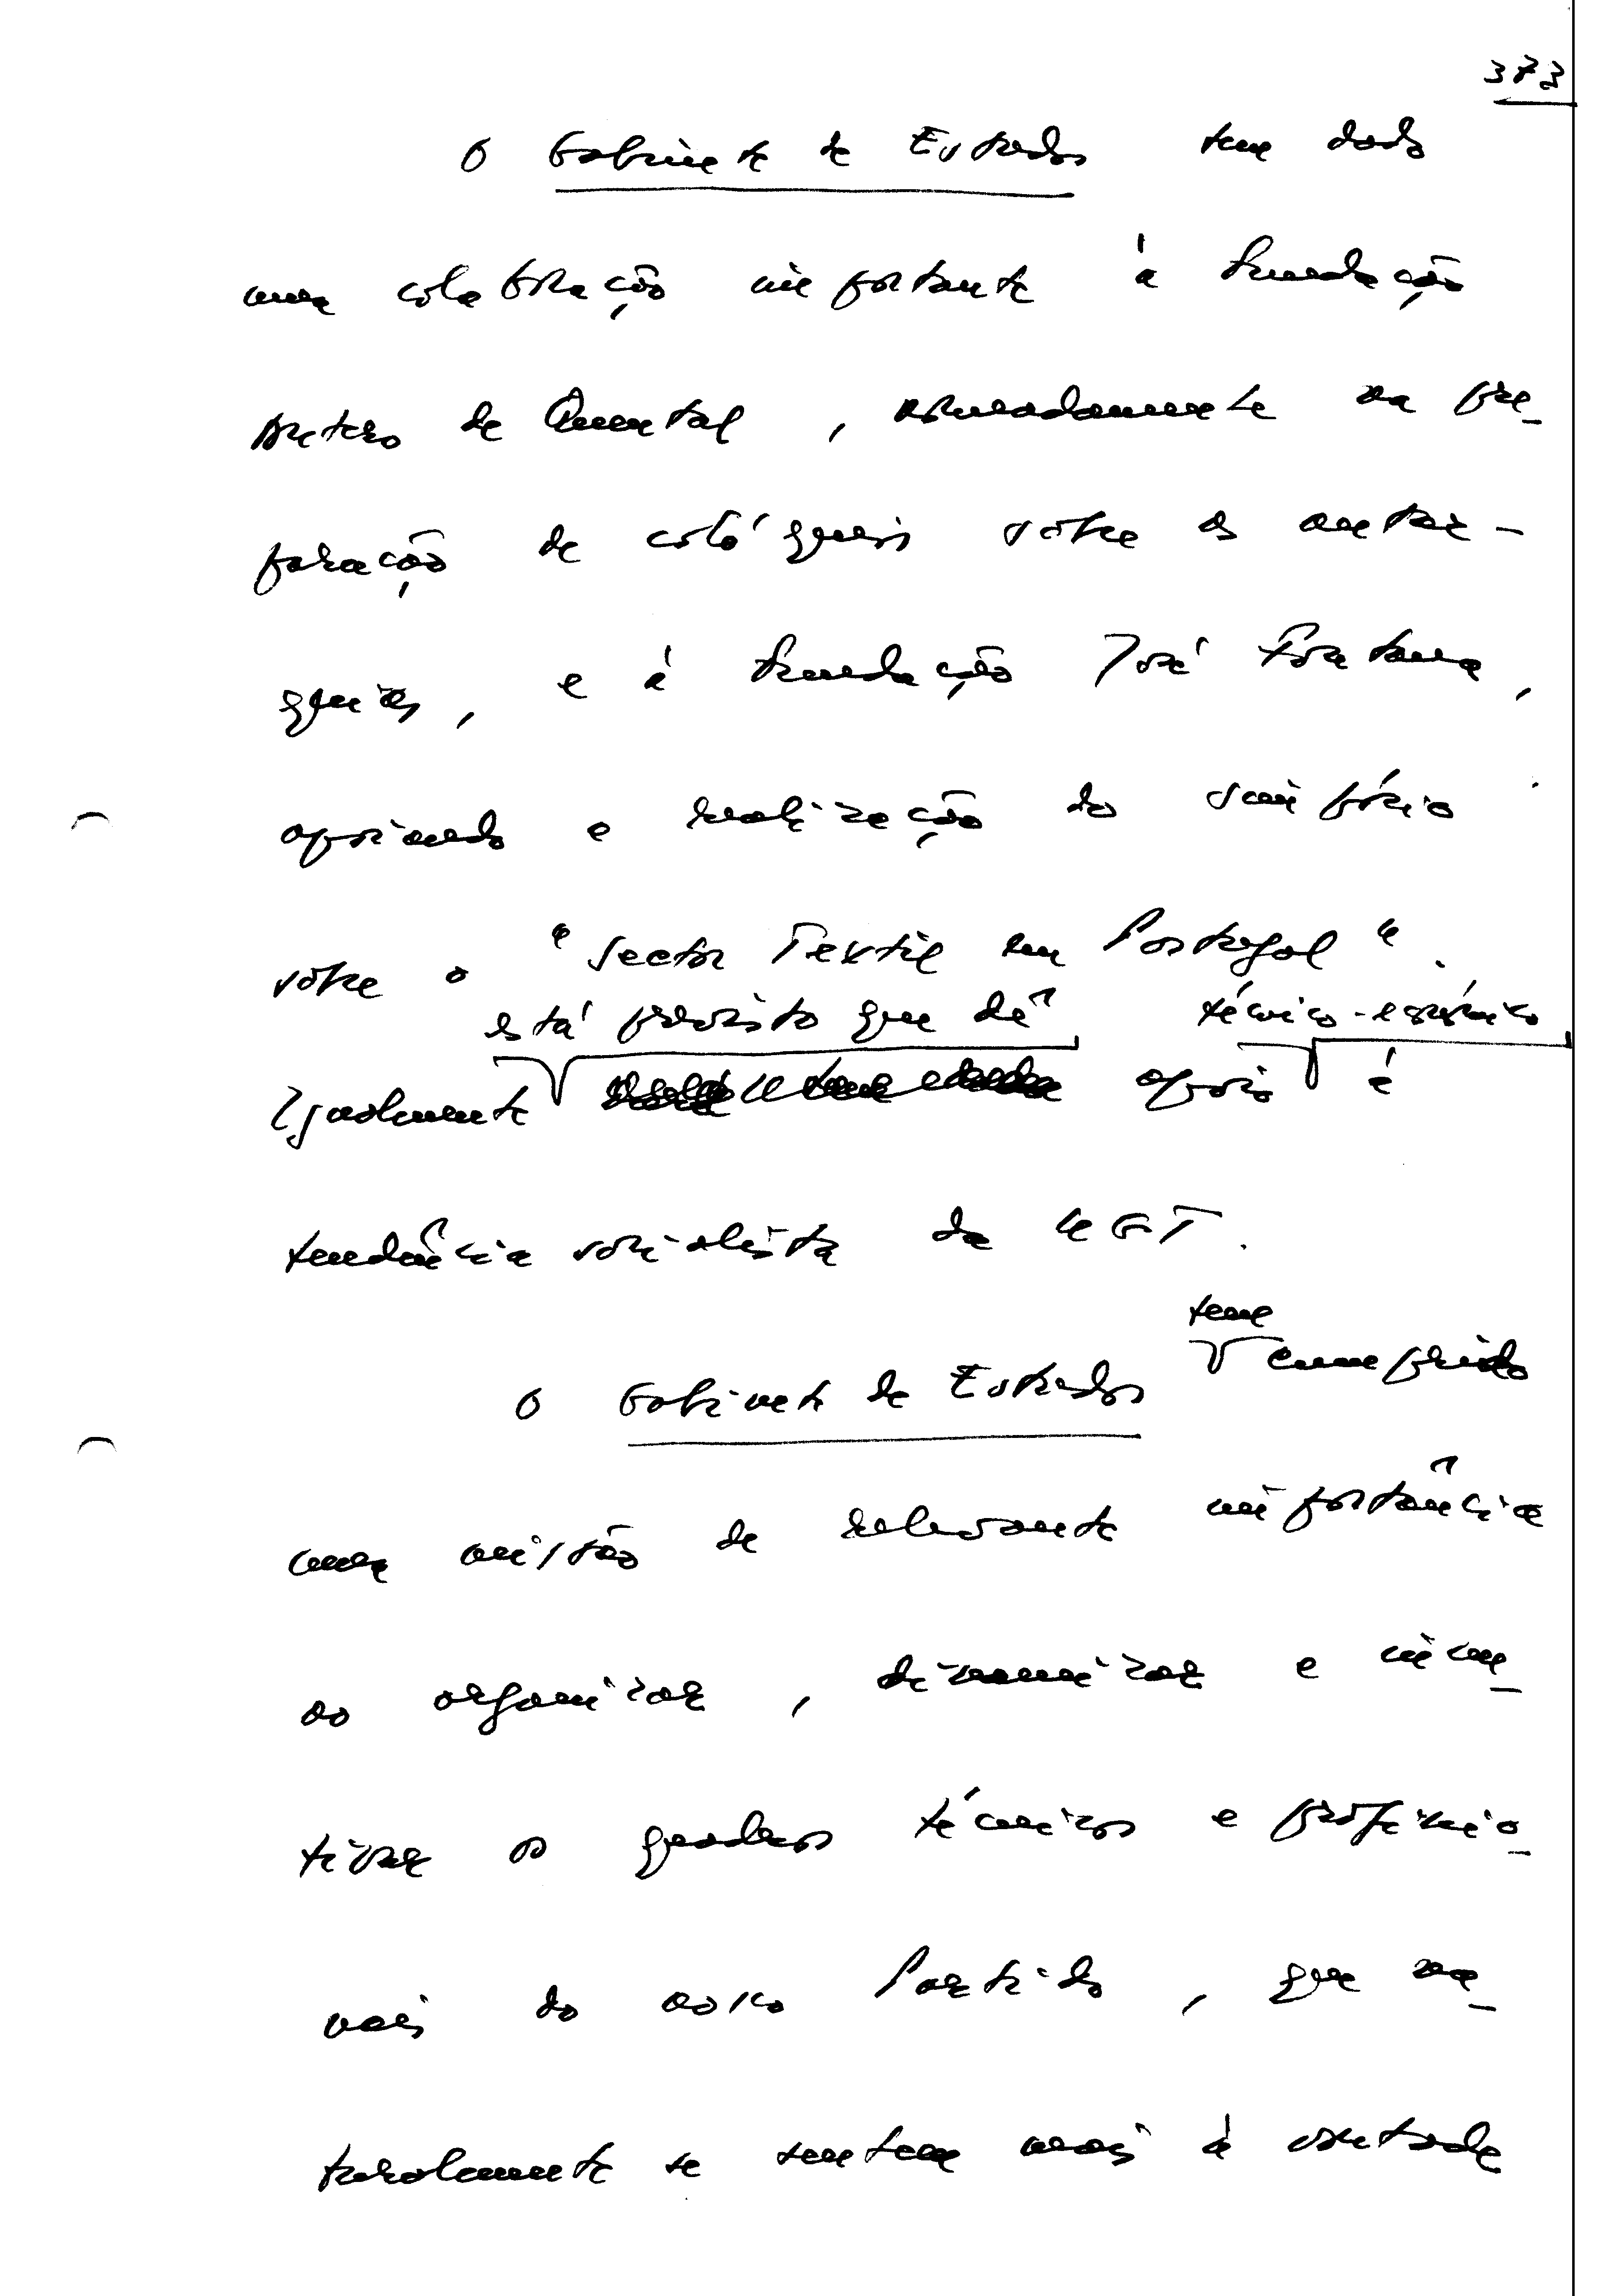 373
O Gabinete de Estudos tem dado
uma colaboração importante à Fundação
Antero de Quental, nomeadamente na pre-
paração de colóquios sobre as autar-
quias, e à Fundação José Fontana,
apoiando a realização do simpósio
sobre o "Sector Textil em Portugal".
está previsto que dê técnico-económico
Igualmente apoio à
tendência socialista da UGT.
tem
O Gabinete de Estudos cumprido
uma missão de relevante importância
ao organizar, dinamizar e incen-
tivar os quadros técnicos e profissio-
nais do nosso Partido, que na-
turalmente se sentem mais à vontade